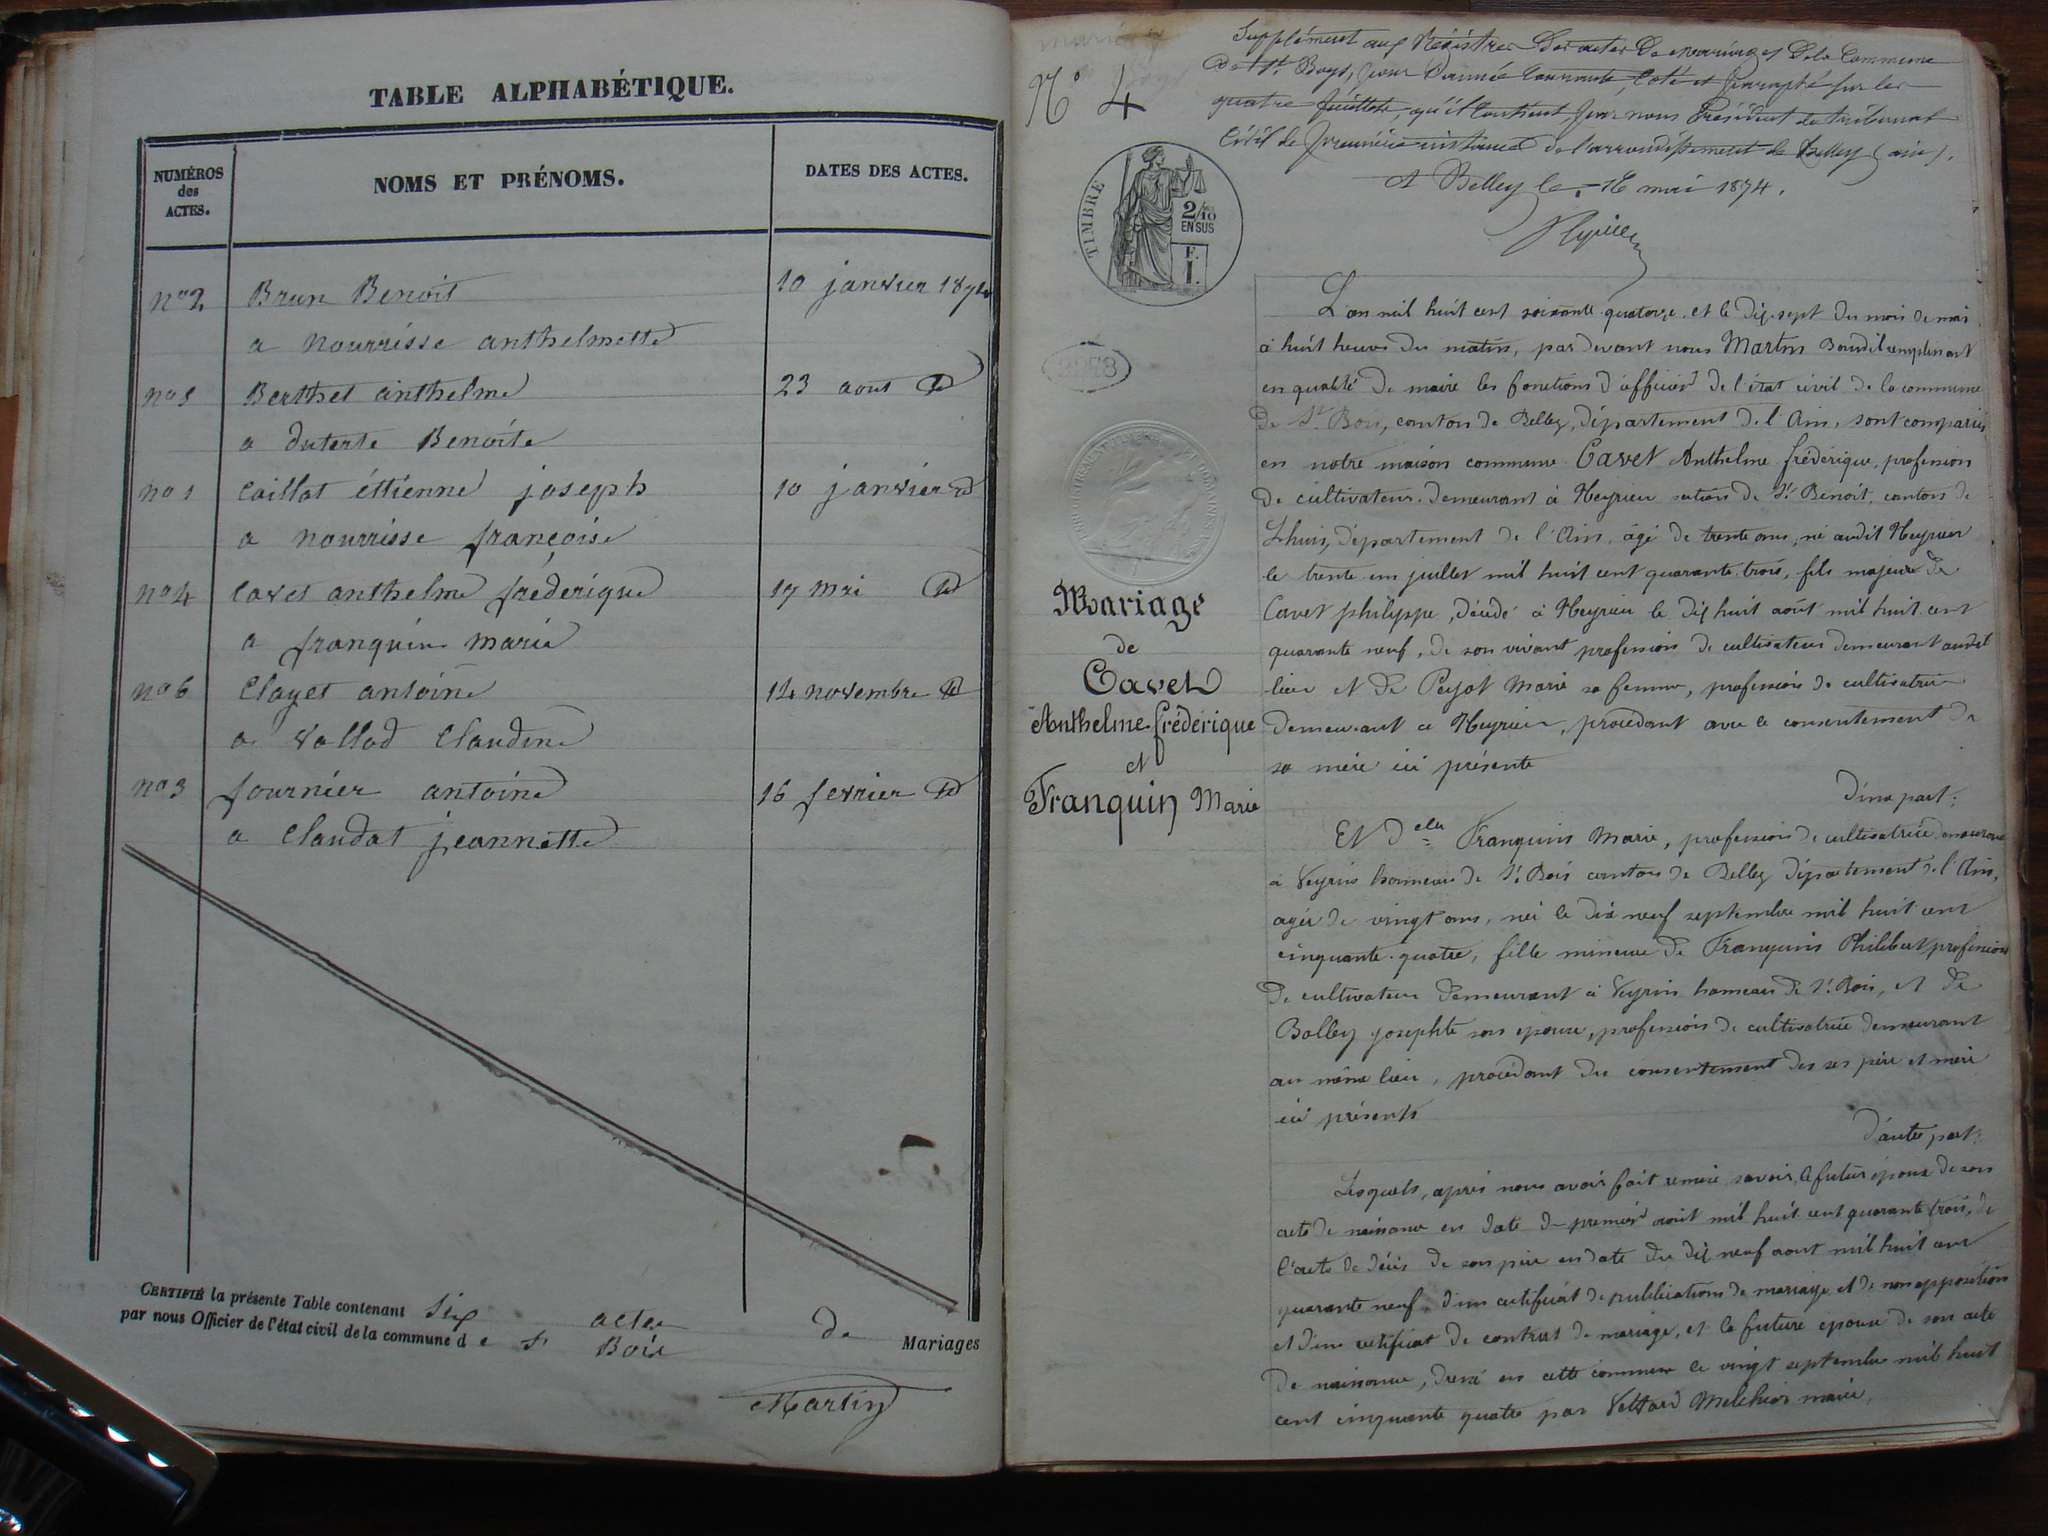 TABLE ALPHABÉTIQUE.
NUMÉROS
des
ACTES.
NOMS ET PRÉNOMS.
DATES DES ACTES.
n° 2 Brun Benoit 10 janvier 1874
a nourrisse anthelmette
n° 5 Berthet anthelme 23 aout d
a duterte Benoite
n° 1 Caillat éttienne joseph 10 janvier d
a nourrisse françoise
n° 4 Cavet anthelme fréderique 17 mai d
a franquin marie
n° 6 Clayet antoine 14 novembre d
a Vallod Claudine
n° 3 fournier antoine 16 fevrier d
a Claudat jeannette
CERTIFIÉ la présente Table contenant six actes de Mariages
par nous Officier de l'état civil de la commune de St Bois
Martin
N° 4
Supplément aux Régistres des actes de mariages de la Commune
de St. Boys, pour l'année courante, coté et paraphé sur les
quatre feuillets, qu'il contient, par nous Président du tribunal
Civil de première instance de l'arrondissement de Belley (ain).
A Belley le 16 mai 1874.
TIMBRE
2/10
EN SUS
F.
1.
Mariage
de
Cavet
Anthelme fréderique
et
Franquin Marie
L'an mil huit cent soixante quatorze et le dix-sept du mois de mai
à huit heures du matin, par devant nous Martin remplissant
en qualité de maire les fonctions d'officier de l'état civil de la commune
de St. Bois, canton de Belley, département de l'Ain, sont comparus,
en notre maison commune Cavet Anthelme fréderique, profession
de cultivateur demeurant à Heyrieu section de St. Benoit, canton de
Lhuis, département de l'Ain, âgé de trente ans, né audit Heyrieu
le trente un juillet mil huit cent quarante trois, fils majeur de
Cavet philippe, décédé à Heyrieu le dix huit août mil huit cent
quarante neuf, de son vivant profession de cultivateur demeurant audit
lieu et de Peysot Marie sa femme, profession de cultivatrice
demeurant a Heyrieu, procédant avec le consentement de
sa mère ici présente
d'une part:
Et delle Franquin Marie, profession de cultivatrice demeurant
à Veyrin hameau de St. Bois canton de Belley département de l'Ain,
agée de vingt ans, née le dix neuf septembre mil huit cent
cinquante-quatre, fille mineure de Franquin Philibert, profession
de cultivateur demeurant à Veyrin hameau de St. Bois, et de
Bolley josephte son épouse, profession de cultivatrice demeurant
au même lieu, procédant du consentement des ses père et mère
ici présents
d'autre part:
Lesquels, après nous avoir fait remise savoir, le futur époux de son
acte de naissance en date du premier août mil huit cent quarante trois, de
l'acte de décès de son père en date du dix neuf aout mil huit cent
quarante neuf, d'un certificat de publications de mariage et de non opposition
et d'un certificat de contrat de mariage, et la future épouse de son acte
de naissance, dressé en cette commune le vingt septembre mil huit
cent cinquante quatre par Melchior maire,